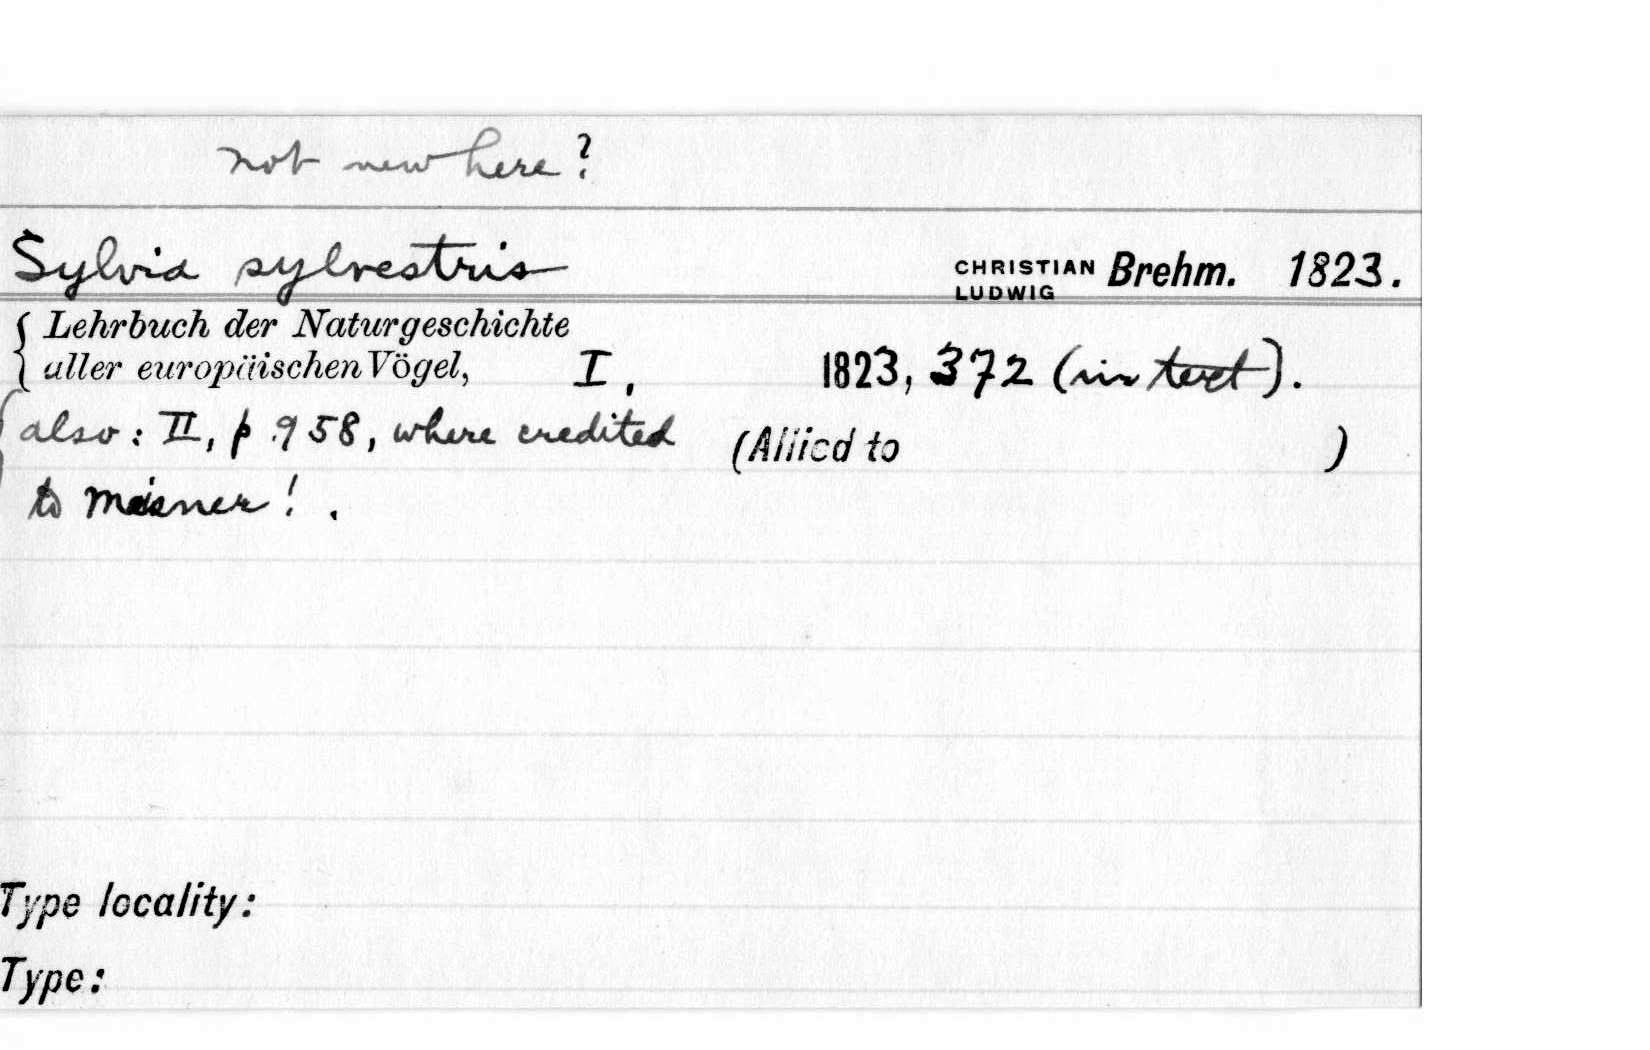 not new here?
Sylvia sylvestris CHRISTIAN LUDWIG Brehm. 1823.
Lehrbuch der Naturgeschichte
aller europäischen Vögel, I, 1823, 372 (in text).
also: II, p. 958, where credited (Allied to )
to Meisner!.
Type locality:
Type: